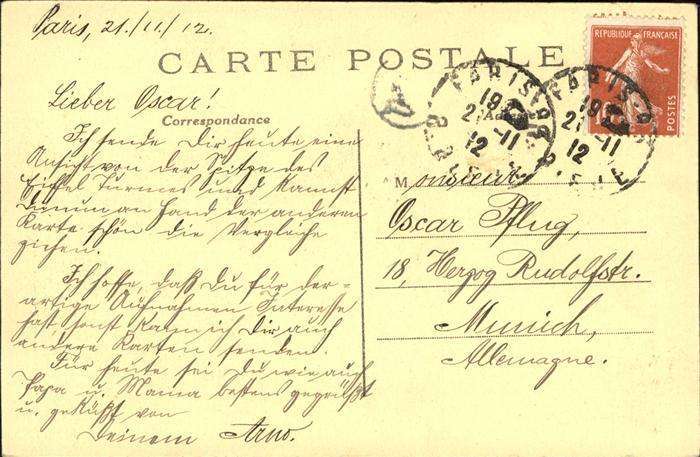 Paris, 21./11./12.
CARTE POSTALE
REPUBLIQUE FRANÇAISE
POSTES
10
PARIS
19
21-11
12
PARIS
19
21-11
12
Lieber Oscar!
Correspondance
Adresse
Ich sende Dir heute eine
Ansicht von der Spitze des
Eiffel Turmes und kannst
Du nun an Hand der anderen
Karte schön die Vergleiche
ziehen.
Ich hoffe, daß Du für der-
artige Aufnahmen Interesse
hast, sonst kann ich Dir auch
andere Karten senden.
Für heute sei Du wie auch
Papa u. Mama bestens gegrüßt
u. geküßt von
Deinem Arno.
Monsieur
Oscar Pflug,
18, Herzog Rudolfstr.
Munich,
Allemagne.